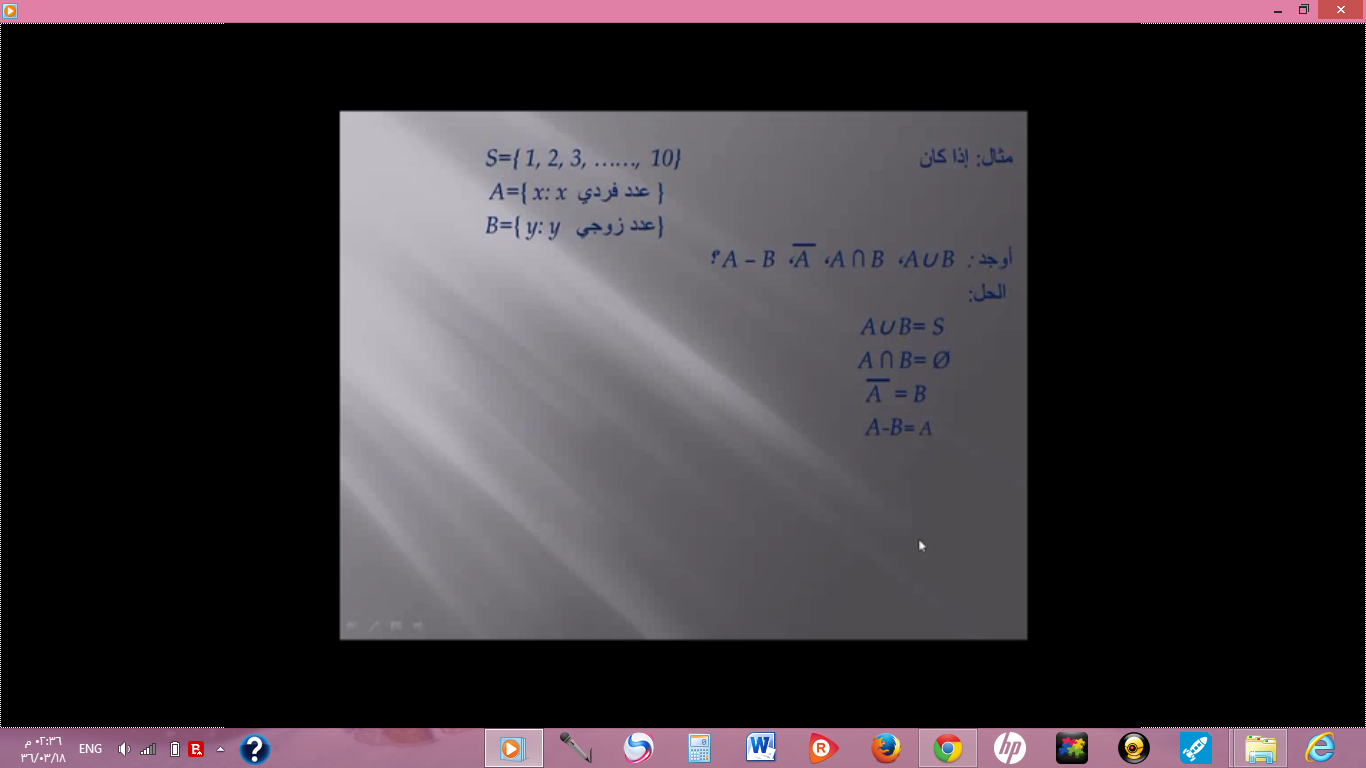 مثال: إذا كان
S={ 1, 2, 3, ……, 10}
A={ x: x عدد فردي }
B={ y: y عدد زوجي}
أوجد : A∪B، A ∩ B، A̅، A – B؟
الحل:
A∪B= S
A ∩ B= Ø
A̅ = B
A-B= A
٠٢:٣٦ م
ENG
٣٦/٠٣/١٨